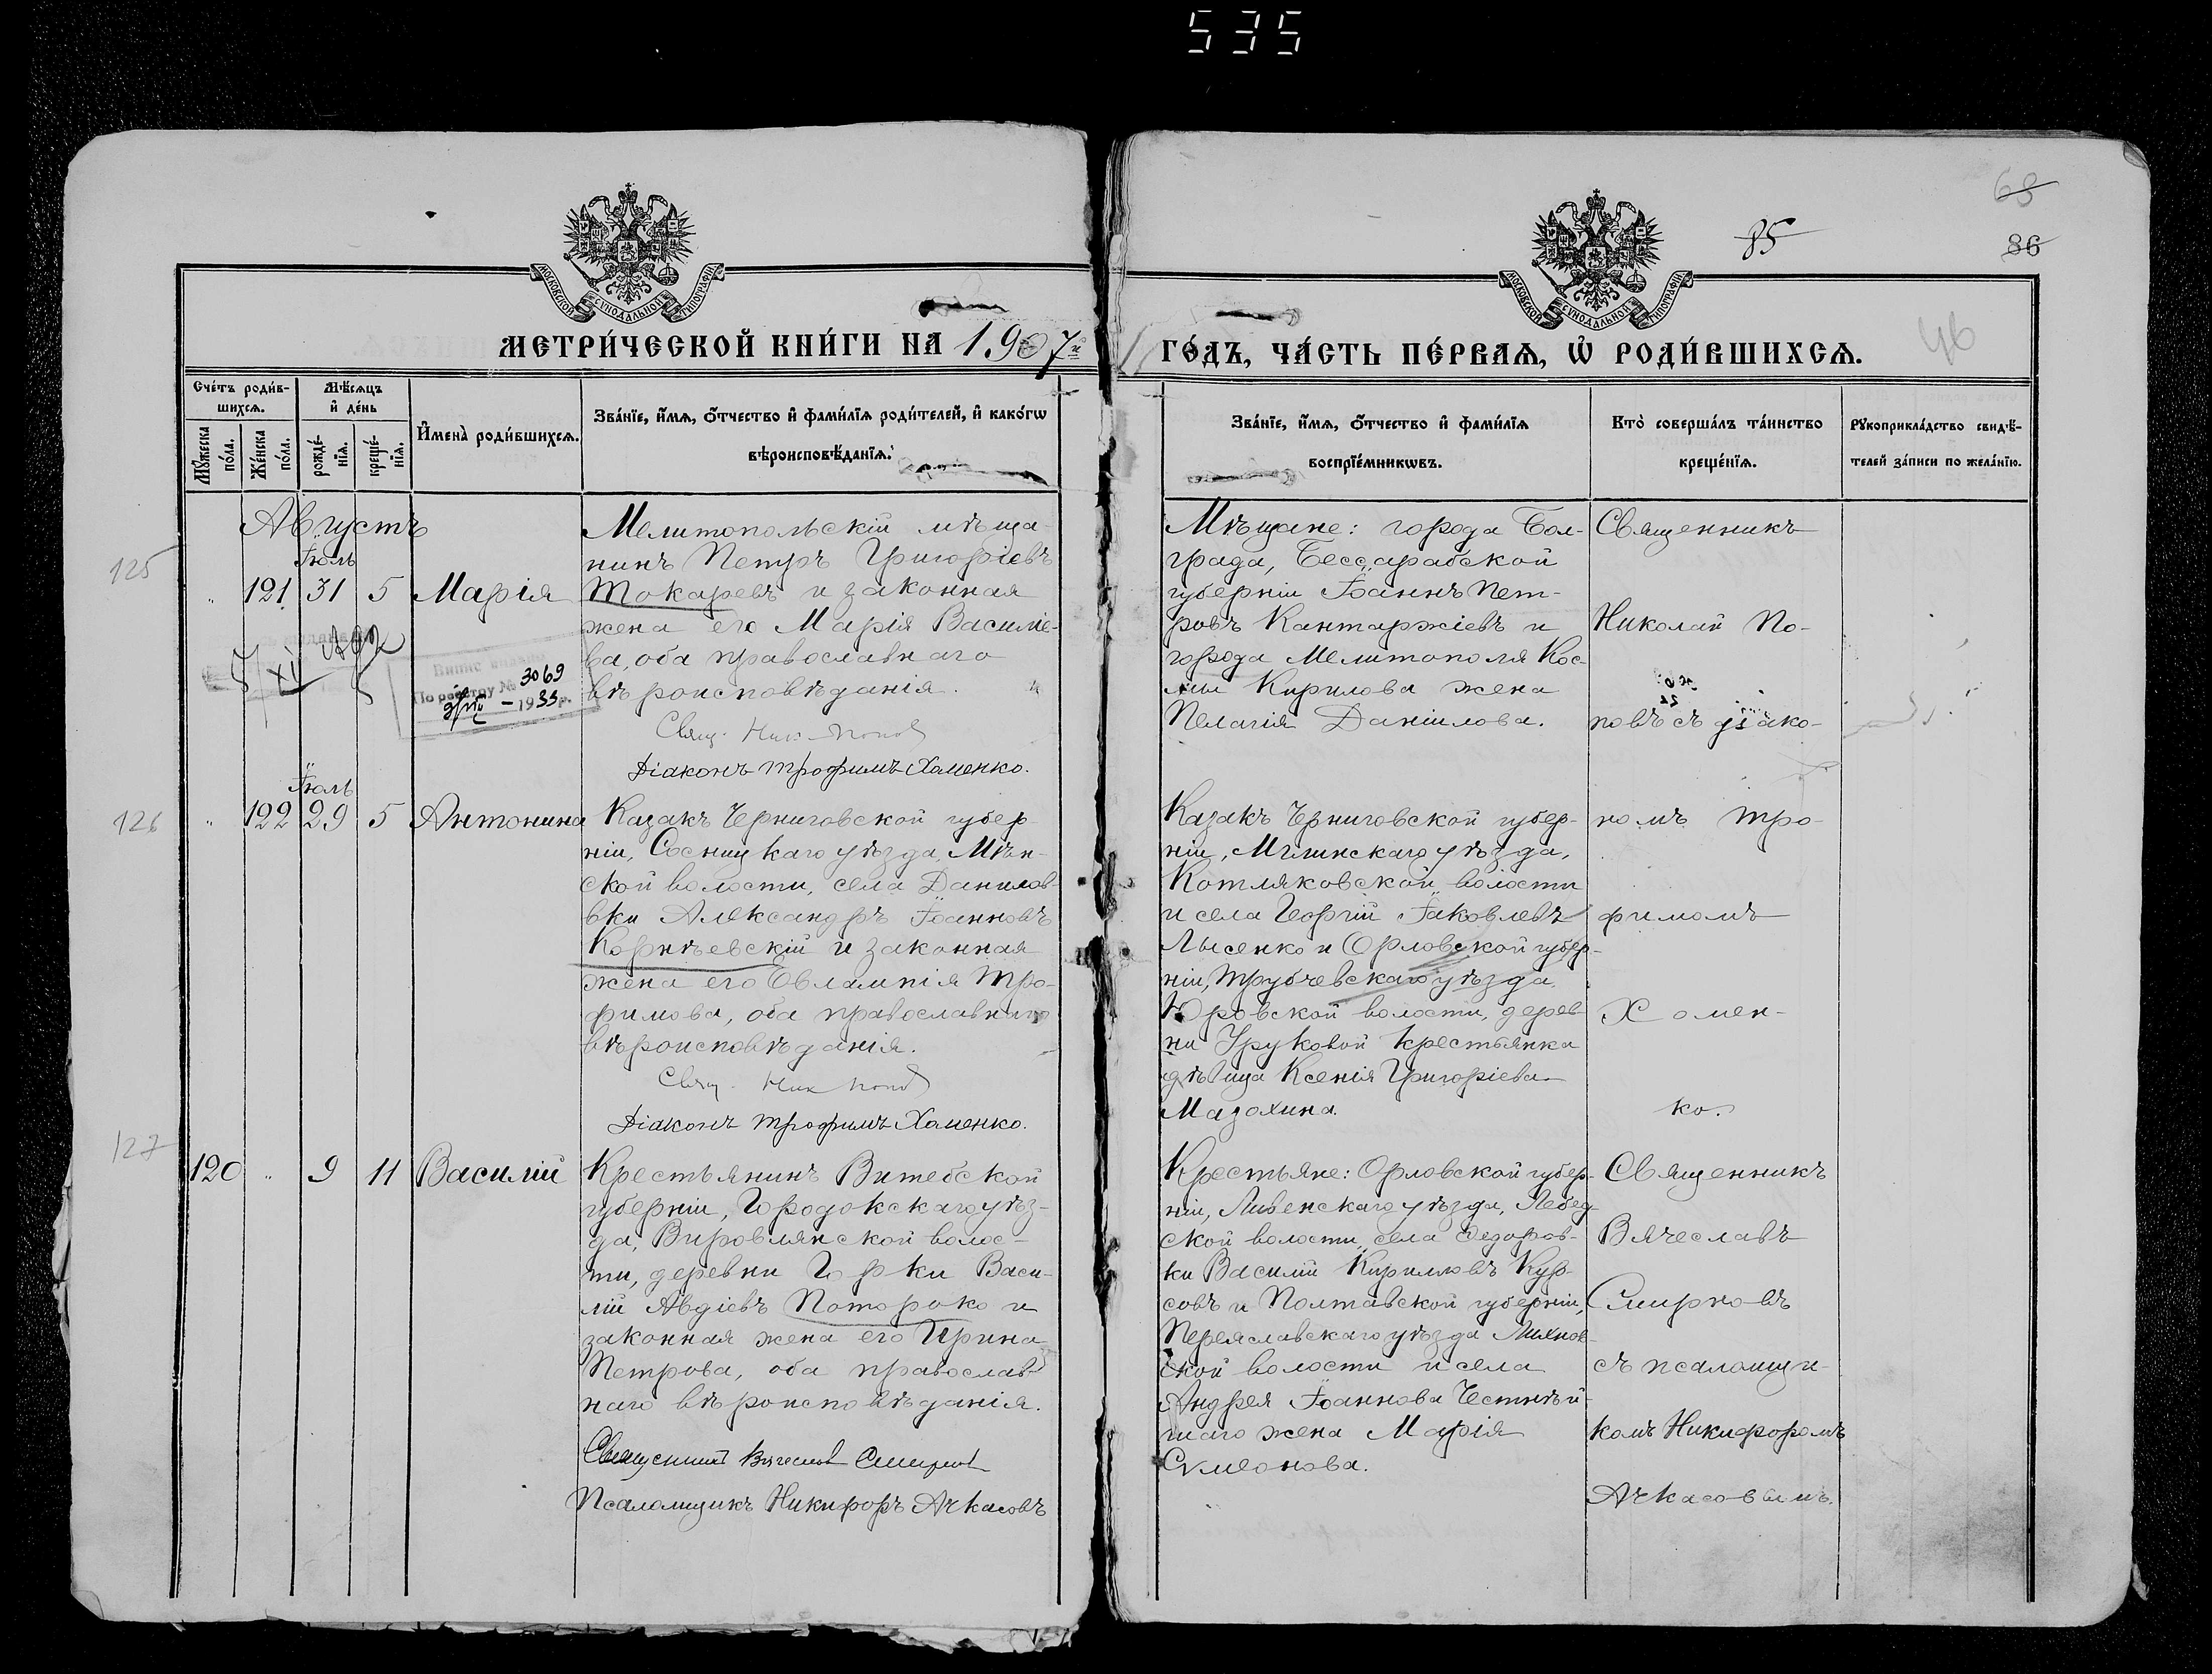 535
63
85
86
46
МОСКОВСКОЙ СУНОДАЛЬНОЙ ТИПОГРАФІИ
МОСКОВСКОЙ СУНОДАЛЬНОЙ ТИПОГРАФІИ
МЕТРИ́ЧЕСКОЙ КНИ́ГИ НА 1907й
ГО́ДЪ, ЧА́СТЬ ПЕ́РВАѦ, Ѡ҆ РОДИ́ВШИХСѦ.
Сче́тъ роди́в-
шихсѧ.
Мѣ́сѧцъ
и҆ де́нь
Мꙋ́жеска
по́ла.
Же́нска
по́ла.
рожде́-
нїѧ.
креще́-
нїѧ.
И҆мена̀ роди́вшихсѧ.
Зва́нїе, и҆́мѧ, ѻ҆́тчество и҆ фами́лїѧ роди́телей, и҆ како́гѡ
вѣроисповѣ́данїѧ.
Зва́нїе, и҆́мѧ, ѻ҆́тчество и҆ фами́лїѧ
воспрїе́мникѡвъ.
Кто̀ соверша́лъ та́инство
креще́нїѧ.
Рꙋкоприкла́дство свидѣ́-
телей за́писи по жела́нїю.
Августъ
125
Іюль
121 31 5 Марія
Мелитопольскій мѣща-
нинъ Петръ Григоріевъ
Токаревъ и законная
жена его Марія Василіе-
ва, оба православнаго
вѣроисповѣданія.
Свящ. Ник. Попов
Діаконъ Трофимъ Хоменко.
По реєстру № 3069
1933 р.
Мѣщане: города Бол-
града, Бессарабской
губерніи Іоаннъ Пет-
ровъ Кантаржіевъ и
города Мелитополя Кос-
мы Кирилова жена
Пелагія Даніилова.
Священникъ
Николай По-
повъ съ діако-
126
Іюль
122 29 5 Антонина
Казакъ Черниговской губер-
ніи, Сосницкаго уѣзда, Мѣн-
ской волости, села Данилов-
вки Александръ Іоанновъ
Корнѣевскій и законная
жена его Евлампія Тро-
фимова, оба православнаго
вѣроисповѣданія.
Свящ. Ник Попов
Діаконъ Трофимъ Хоменко.
Казакъ Черниговской губер-
ніи, Мглинскаго уѣзда,
Котляковской волости
и села Георгій Іаковлевъ
Лысенко и Орловской губер-
ніи, Трубчевскаго уѣзда
Юровской волости, дерев-
ни Уруковой крестьянка
дѣвица Ксенія Григоріева
Мазохина.
номъ Тро-
фимомъ
Хомен-
ко.
127
120 9 11 Василій
Крестьянинъ Витебской
губерніи, Городокскаго уѣз-
да, Вировлянской волос-
ти, деревни Горки Васи-
лій Авдіевъ Потороко и
законная жена его Ирина
Петрова, оба православ-
наго вѣроисповѣданія.
Священникъ Вячеслав Смирнов
Псаломщикъ Никифоръ Ачкасовъ
Крестьяне: Орловской губер-
ніи, Ливенскаго уѣзда, Лебед-
ской волости, села Федоров-
ки Василій Кириловъ Кур-
совъ и Полтавской губерніи,
Переяславскаго уѣзда Лихнов-
ской волости и села
Андрея Іоаннова Честнѣй-
шаго жена Марія
Сумеонова.
Священникъ
Вячеславъ
Смирновъ
съ псаломщи-
комъ Никифоромъ
Ачкасовымъ.